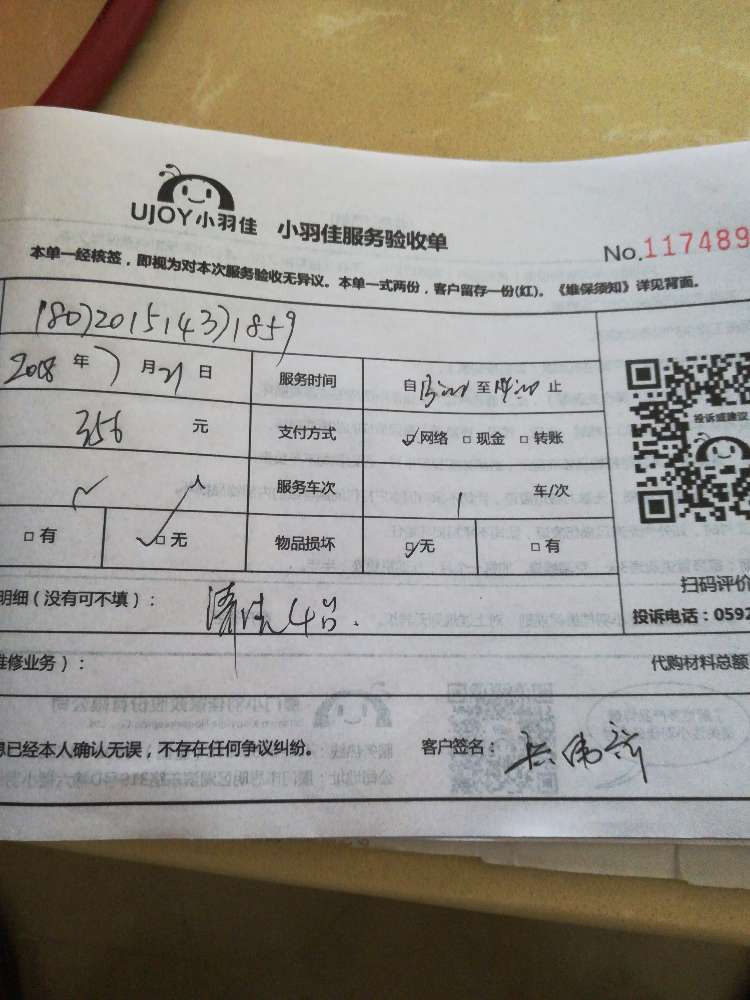 UJOY小羽佳 小羽佳服务验收单
No.117489
本单一经核签，即视为对本次服务验收无异议。本单一式两份，客户留存一份(红)。《维保须知》详见背面。
1807201514371859
年 7 月 21 日 服务时间 自 至 止
356 元 支付方式 ☑网络 □现金 □转账
人 服务车次 1 车/次
□有 ☑无 物品损坏 ☑无 □有
投诉或建议
扫码评价
明细（没有可不填）： 清洗4台.
投诉电话：0592
维修业务）： 代购材料总额
息已经本人确认无误，不存在任何争议纠纷。 客户签名：